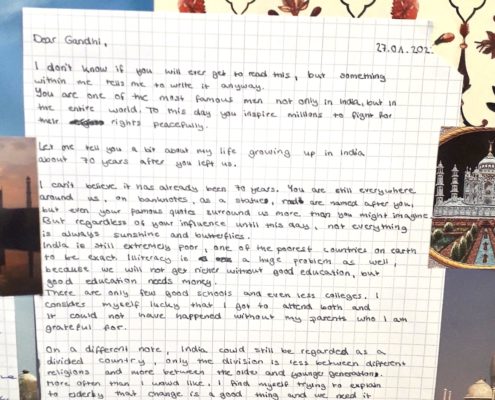 Dear Gandhi,
27.01.202
I don't know if you will ever get to read this, but something
within me tells me to write it anyway.
You are one of the most famous men not only in India, but in
the entire world. To this day you inspire millions to fight for
their rights peacefully.
Let one tell you a bit about my life growing up in India
about 70 years after you left us.
I can't believe it has already been 70 years. You are still everywhere
around us, on banknotes, as a statues, roads are named after you,
but even your famous quotes surround us more than you might imagine.
But regardless of your influence until this day, not everything
is always sunshine and butterflies.
India is still extremely poor, one of the poorest countries on earth
to be exact. Illiteracy is a huge problem as well,
because we will not get richer without good education, but
good education needs money.
There are only few good schools and even less colleges. I
consider myself lucky that I got to attend both and
it could not have happened without my parents who I am
grateful for.
On a different note, India could still be regarded as a
divided country, only the division is less between different
religions and more between the older and younger generations.
More often than I would like, I find myself trying to explain
to elderly that change is a good thing and we need it